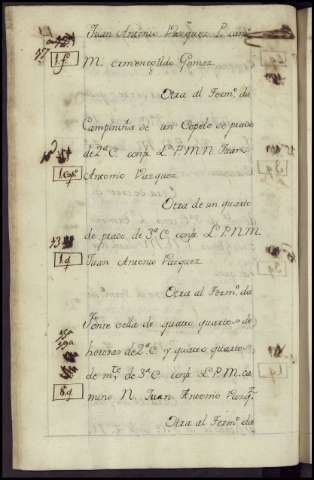 Juan Antonio Vazquez P. cam.
1 f.
M. ermenegildo Gomez.
Otra al Ferm.º da
Campiniña de un Copelo de prado
de 2ª C. conf. L. P. M. N. Juan
Antonio Vazquez
Otra de un quarto
de prado de 3ª C. conf. L. P. N. M.
1 q
Juan Antonio Vazquez
Otra al Ferm.º da
Fonte vella de quatro quartos de
hortense de 2ª C. y quatro quartos
de m.te de 3ª C. conf. L. P. M. ca
8 q
mino N. Juan Antonio Vazq.
Otra al Ferm.º da